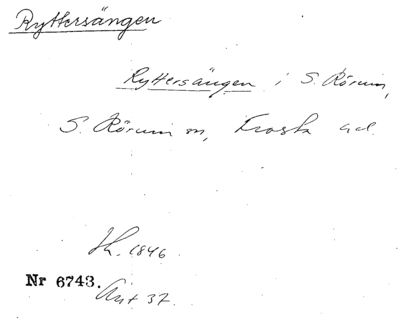 Ryttersängen
Ryttersängen i S. Rörum,
S. Rörum sn, Frosta hd.
Sk. 1846
Nr 6743.
Avt 37.